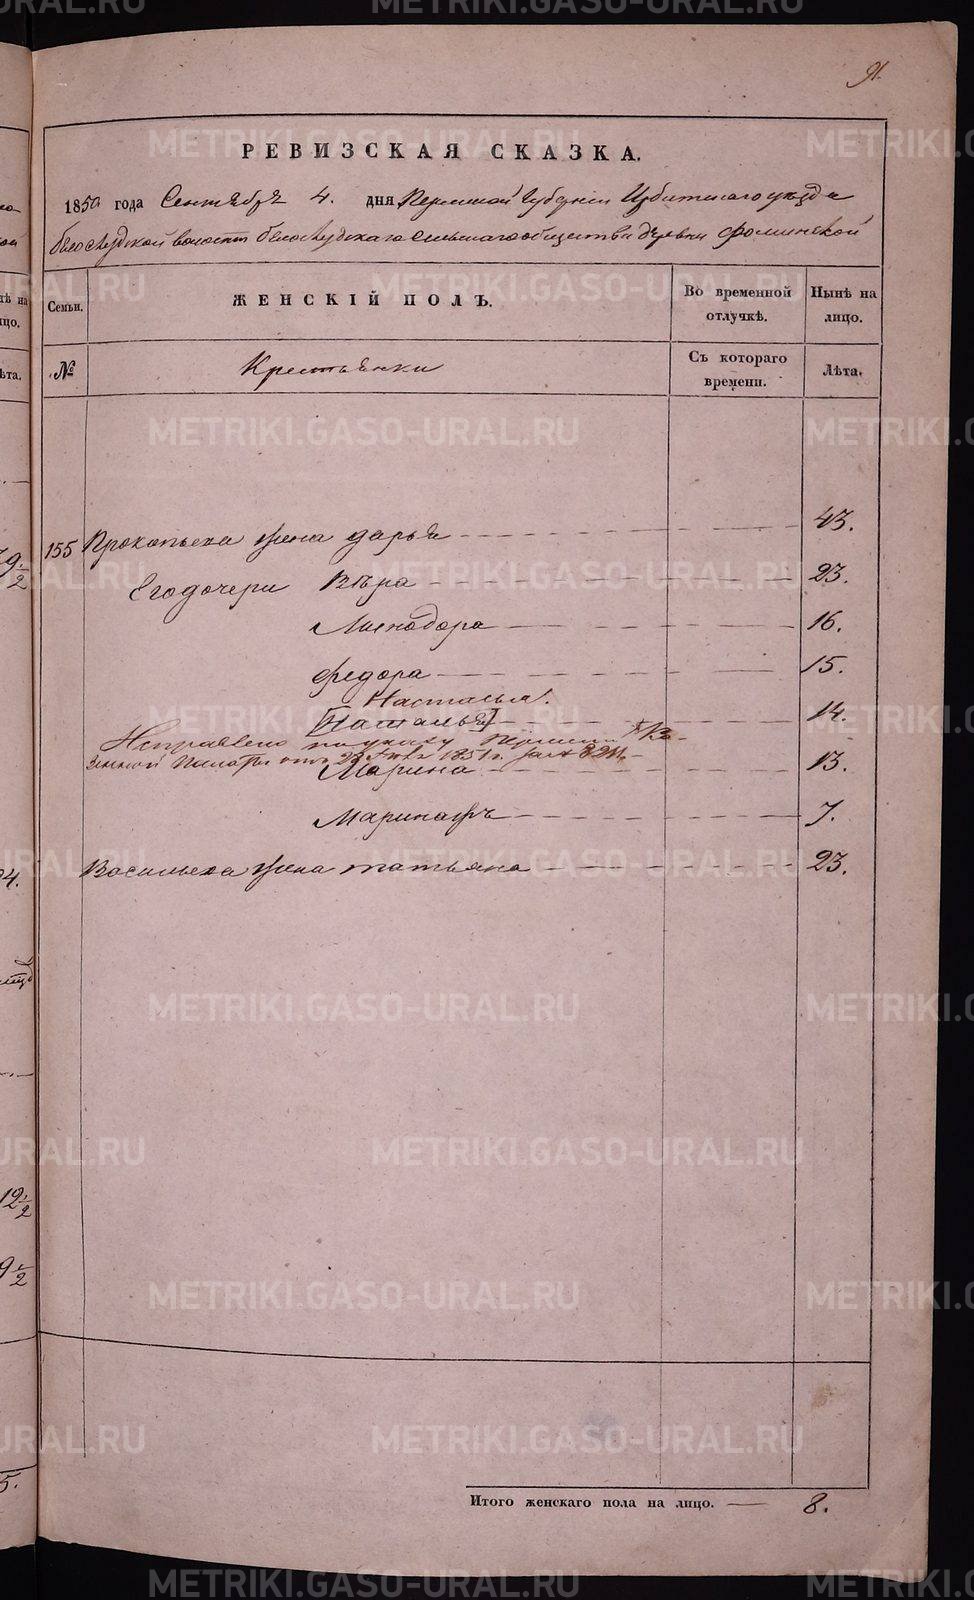 91.
РЕВИЗСКАЯ СКАЗКА.
1850 года Сентября 4. дня Пермской Губернии Ирбитскаго уезда
белослудской волости белослудскаго сельскаго общества деревни Фоминской
Семьи. ЖЕНСКІЙ ПОЛЪ. Во временной отлучкѣ. Нынѣ на лицо.
№ Крестьянки Съ котораго времени. Лѣта.
155 Прокопьева жена дарья 43.
Его дочери Вѣра 23.
Минодора 16.
федора 15.
Настасья.
[Наталья] 14.
Исправлено по указу Пермской Ка-
зенной Палаты отъ 1851 г. за №
Марина 13.
7.
Васильева жена татьяна 23.
Итого женскаго пола на лицо. 8.
METRIKI.GASO-URAL.RU